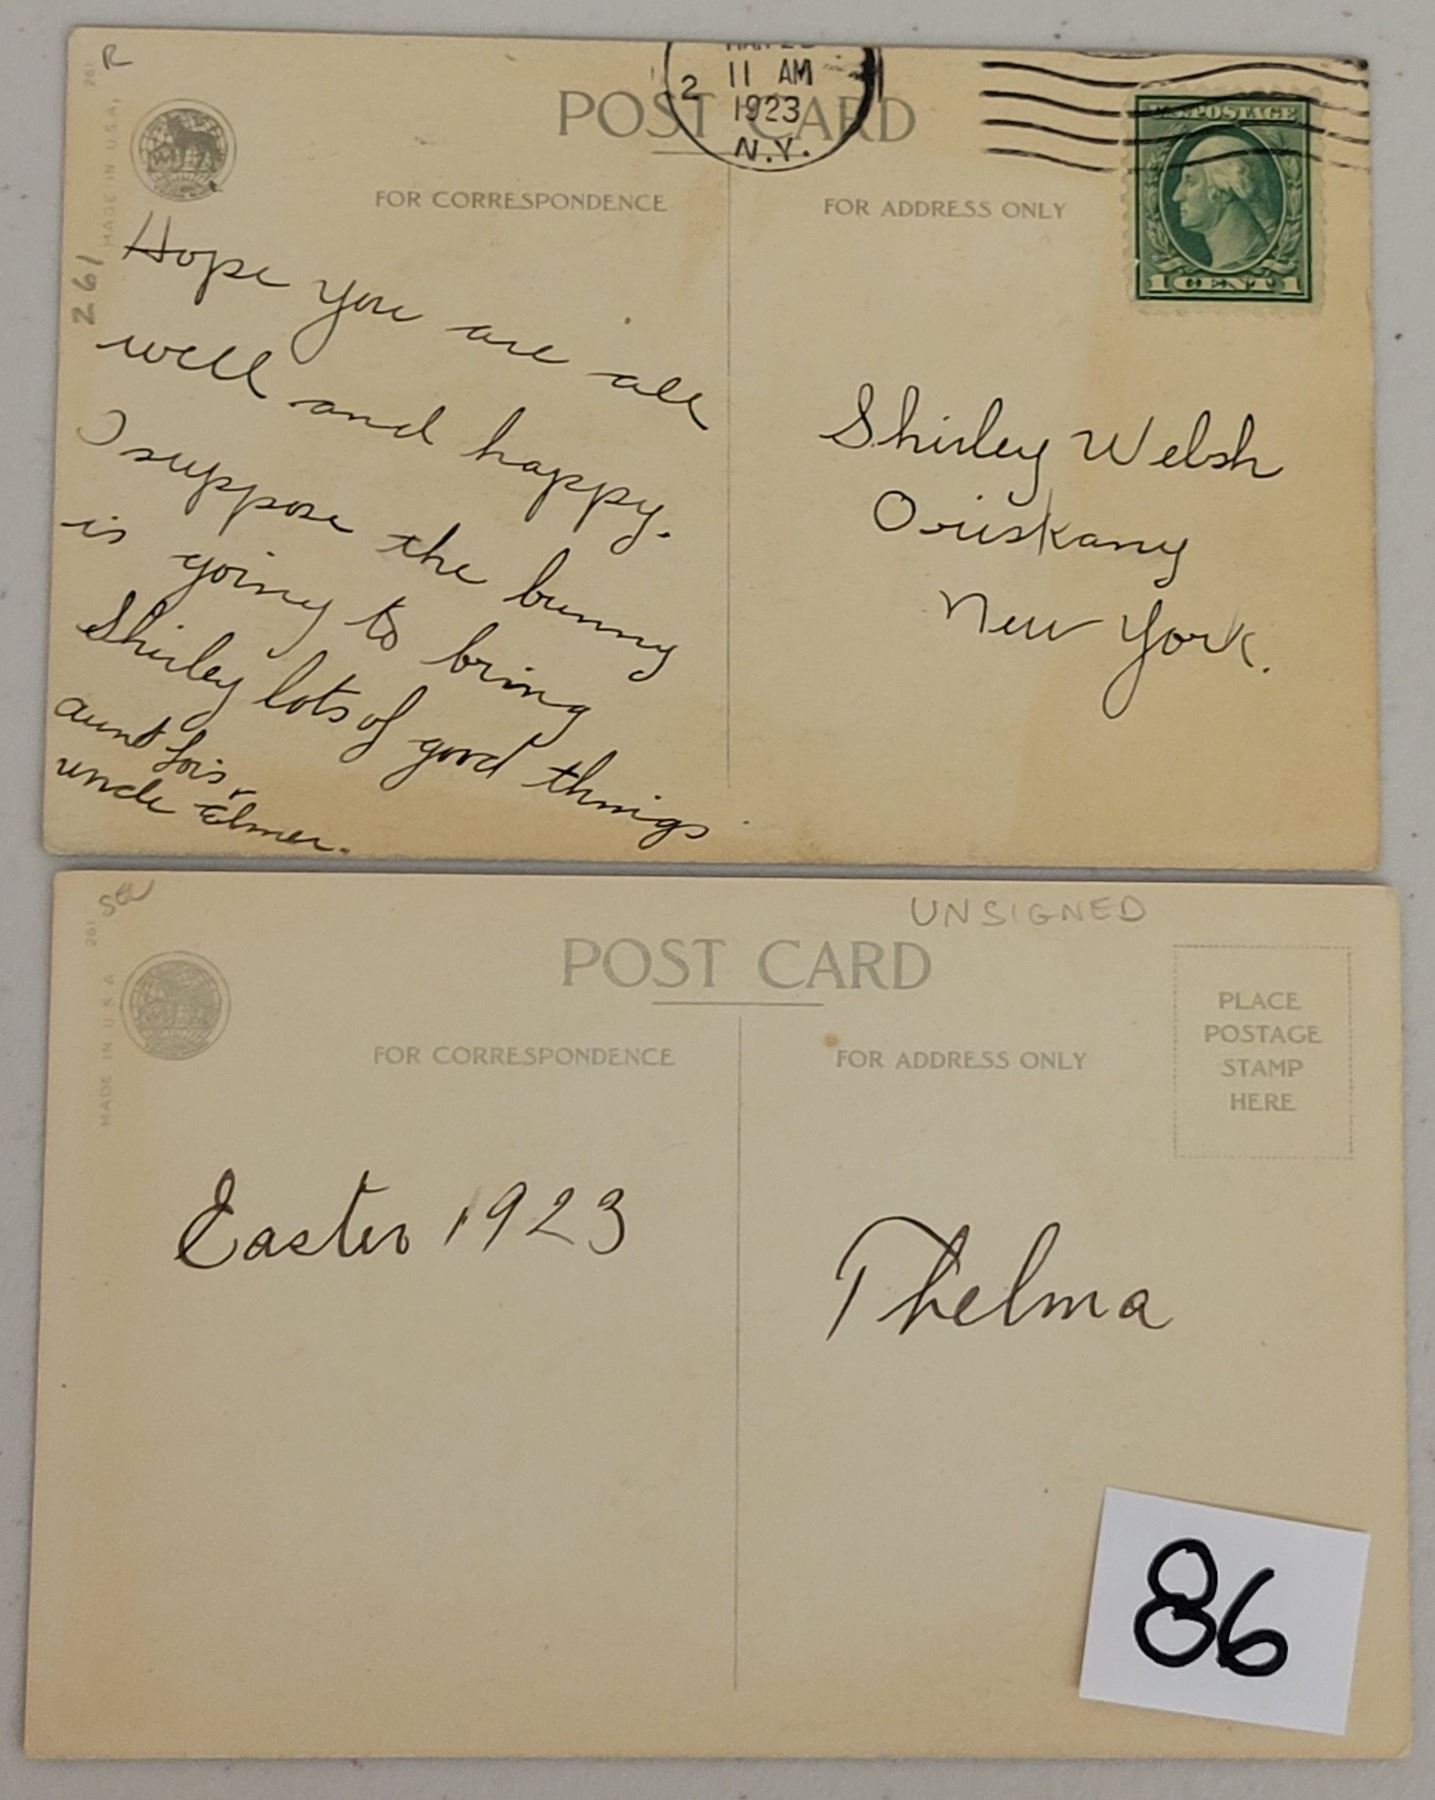 R
261
MADE IN U.S.A.
11 AM
2
1923
N.Y.
POST CARD
FOR CORRESPONDENCE
FOR ADDRESS ONLY
U.S. POSTAGE
1 CENT 1
261
Hope you are all
well and happy.
I suppose the bunny
is going to bring
Shirley lots of good things
aunt Lois &
uncle Elmer.
Shirley Welsh
Oriskany
New York.
261
MADE IN U.S.A
UNSIGNED
POST CARD
FOR CORRESPONDENCE
FOR ADDRESS ONLY
PLACE
POSTAGE
STAMP
HERE
Easter 1923
Thelma
86